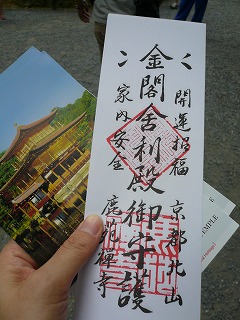 開運招福
京都北山
金閣舎利殿御守護
家内安全
鹿苑禅寺
TEMPLE